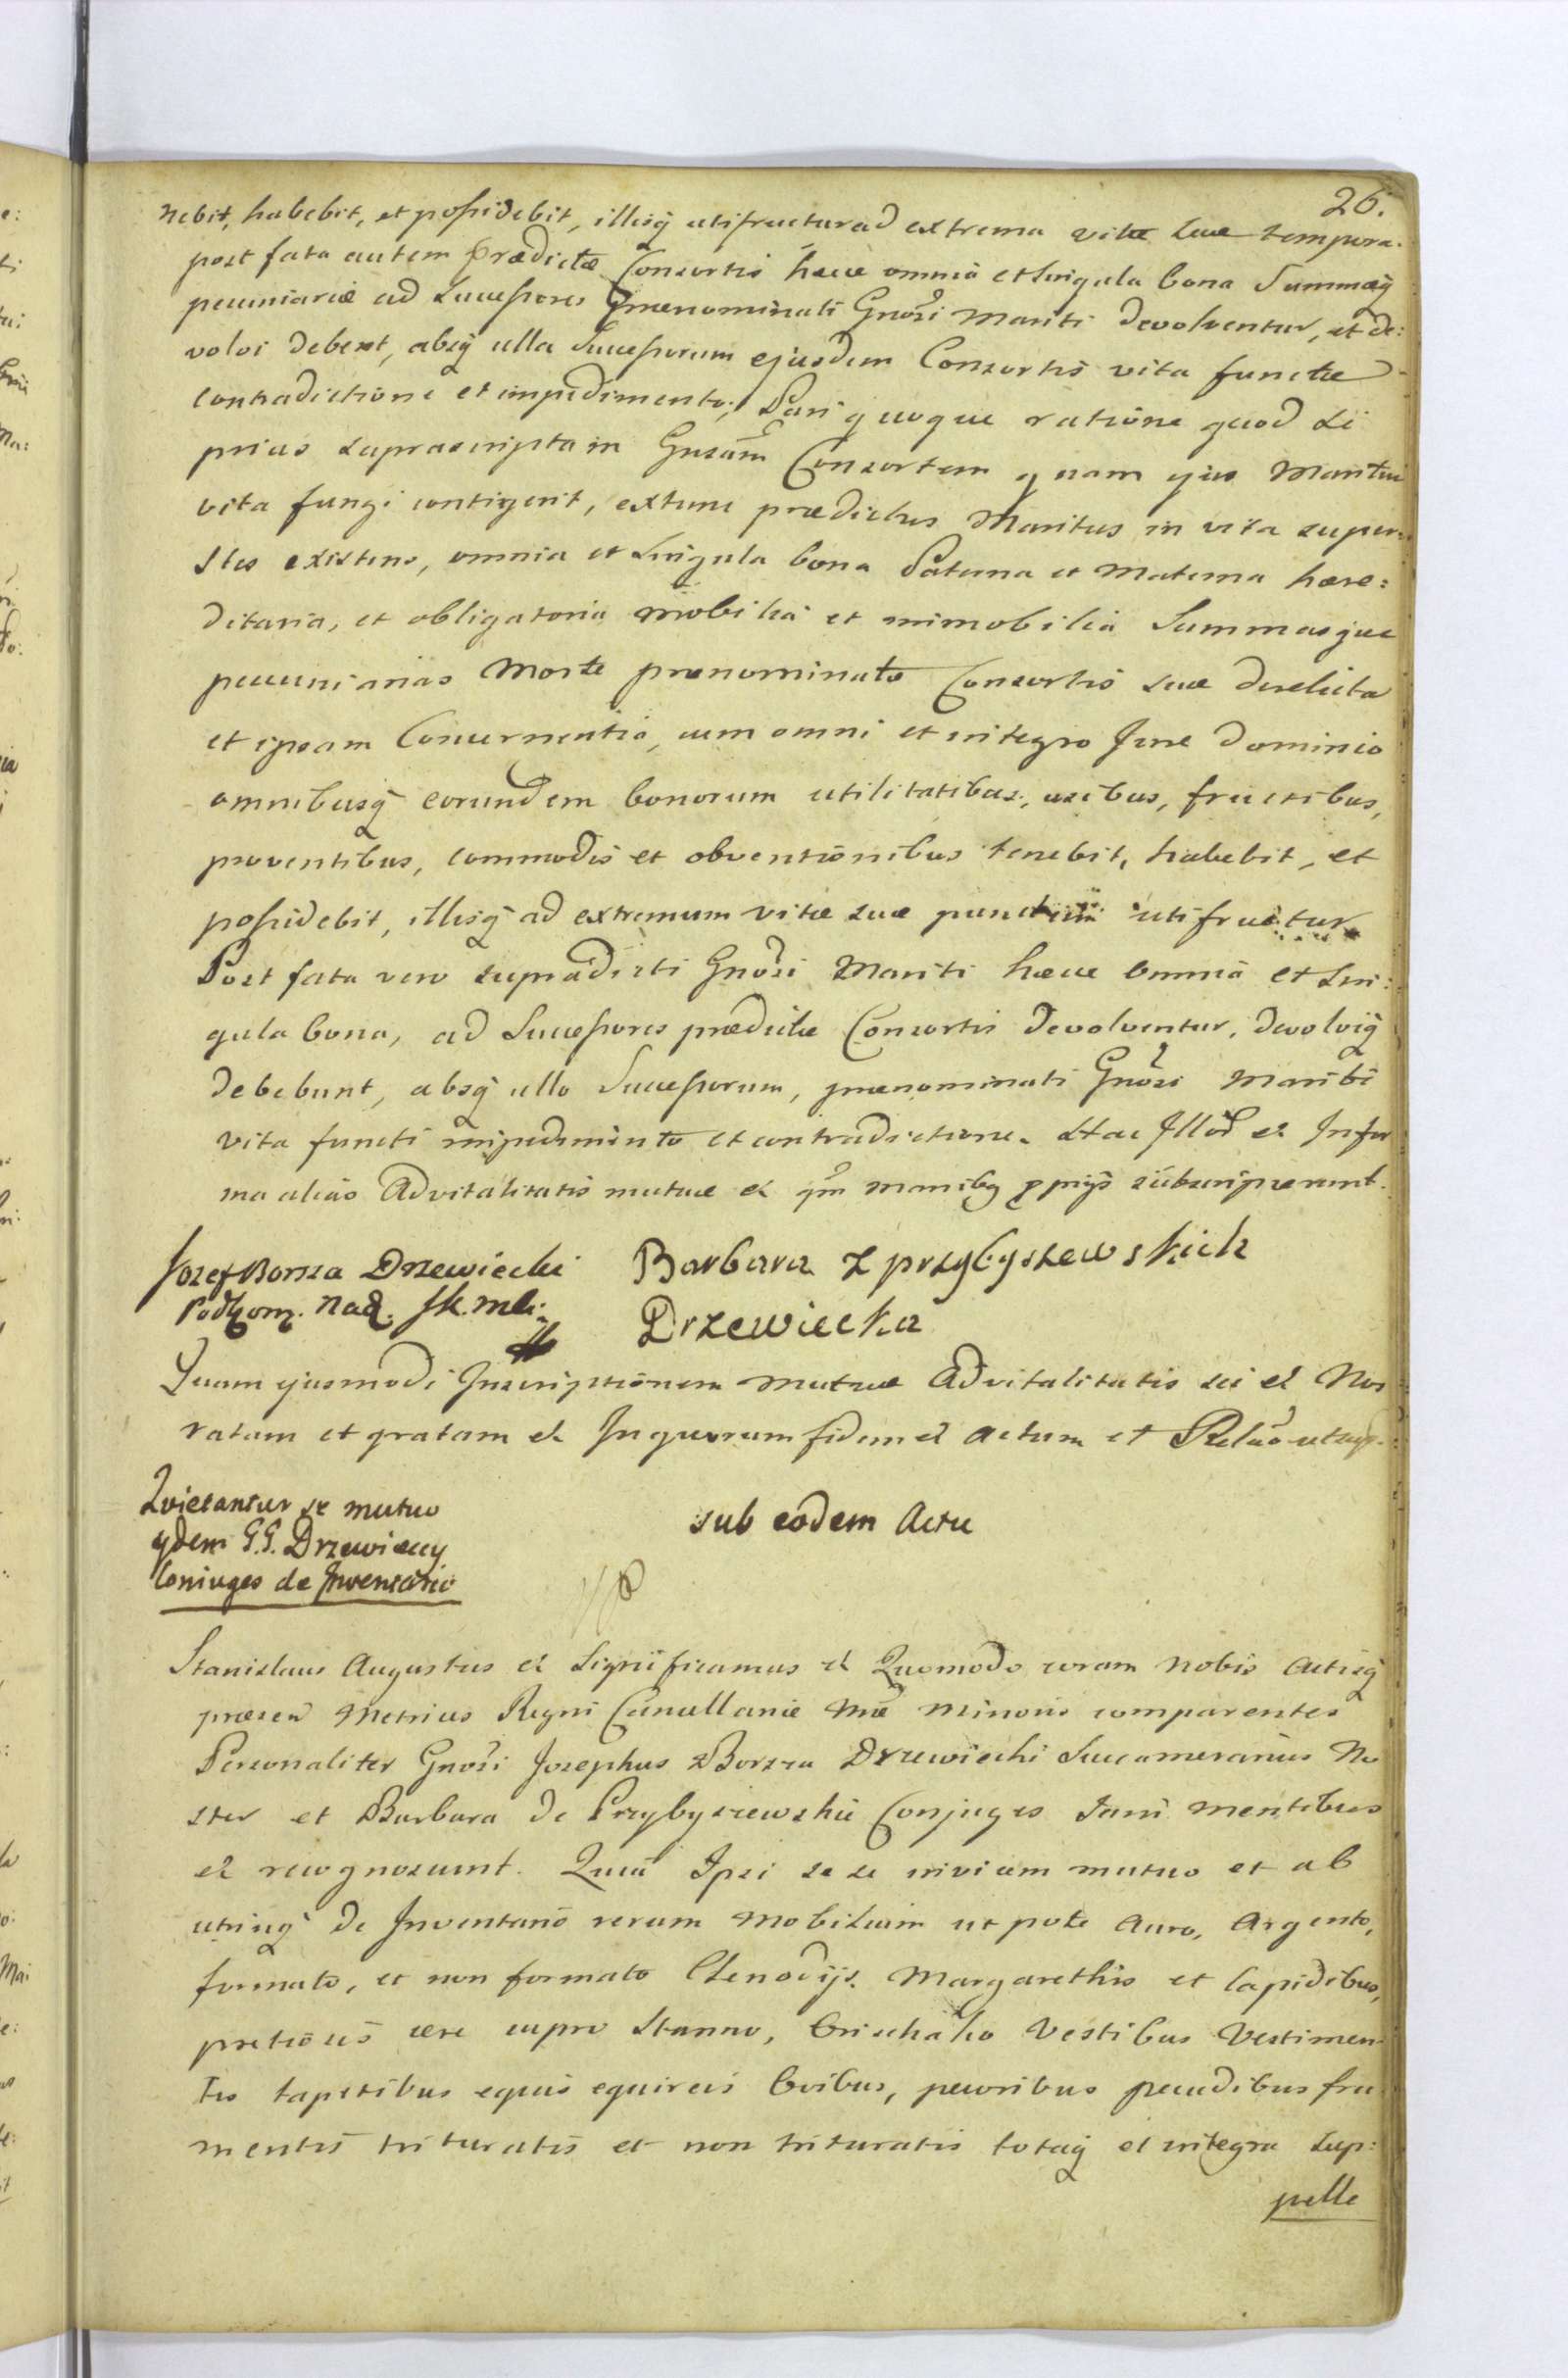 26.
nebit, habebit, et possidebit, illisq utifructur ad extrema vitæ suæ tempora.
post fata autem prædictæ Consortis hæcce omnia et singula bona Summæq
pecuniariæ ad Successores prænominati Gnosi Mariti devolventur, et de:
volvi debent, absq ulla Successorum ejusdem Consortis vita functæ
contradictione et impedimento; Pari quoque ratione quod si
prius suprascriptam Gnsam Consortem quam ejus Maritum
vita fungi contigerit, extunc prædictus Maritus in vita super:
stes existens, omnia et singula bona Paterna et Materna hære:
ditaria, et obligatoria mobilia et immobilia Summasque
pecuniarias Morte prænominatæ Consortis suæ derelicta
et ipsam Concernentia, cum omni et integro Jure dominio
omnibusq eorundem bonorum utilitatibus, usibus, fructibus,
proventibus, commodis et obventionibus tenebit, habebit, et
possidebit, illisq ad extremum vitæ suæ punctum utifruetur
Post fata vero supradicti Gnosi Mariti hæcce omnia et sin:
gula bona, ad Successores prædictæ Consortis devolventur, devolviq
debebunt, absq ullo Successorum, prænominati Gnosi Mariti
vita functi impedimento et contradictione. Hac Illor et Infor
ma alias Advitalitatis mutuæ et qm manibq ppriis subscripserunt.
Jozef Borsza Drzewiecki
Podkom. Nad. JK. mci.
Barbara z przybyszewskich
Drzewiecka
Quam ejusmodi Inscriptionem mutuæ Advitalitatis sci et Nos
ratam et gratam et In quorum fidem et Actum et Relao ut sup.
Quietantur se mutuo
ydem G.G. Drzewieccy
Coniuges de Inventario
sub eodem Actu
Stanislaus Augustus et Significamus et Quomodo coram Nobis Actisq
præsen Metrices Regni Cancellariæ Mæ Minoris comparentes
Personaliter Gnosi Josephus Borsza Drzewiecki Succamerarius No
ster et Barbara de Przybyszewskie Conjuges Sani mentibus
et recognoverunt. Quia Ipsi se se invicem mutuo et ab
utrinq de Inventario rerum Mobilium ut pote Auro, Argento,
formato, et non formato Clenodijs Margarethis et lapidibus,
pretiosis ære cupro Stanno, Orichalco Vestibus Vestimen
tis tapetibus equis equireis bovibus, pecoribus pecudibus fru
mentis trituratis et non trituratis totaq et integra sup:
pelle